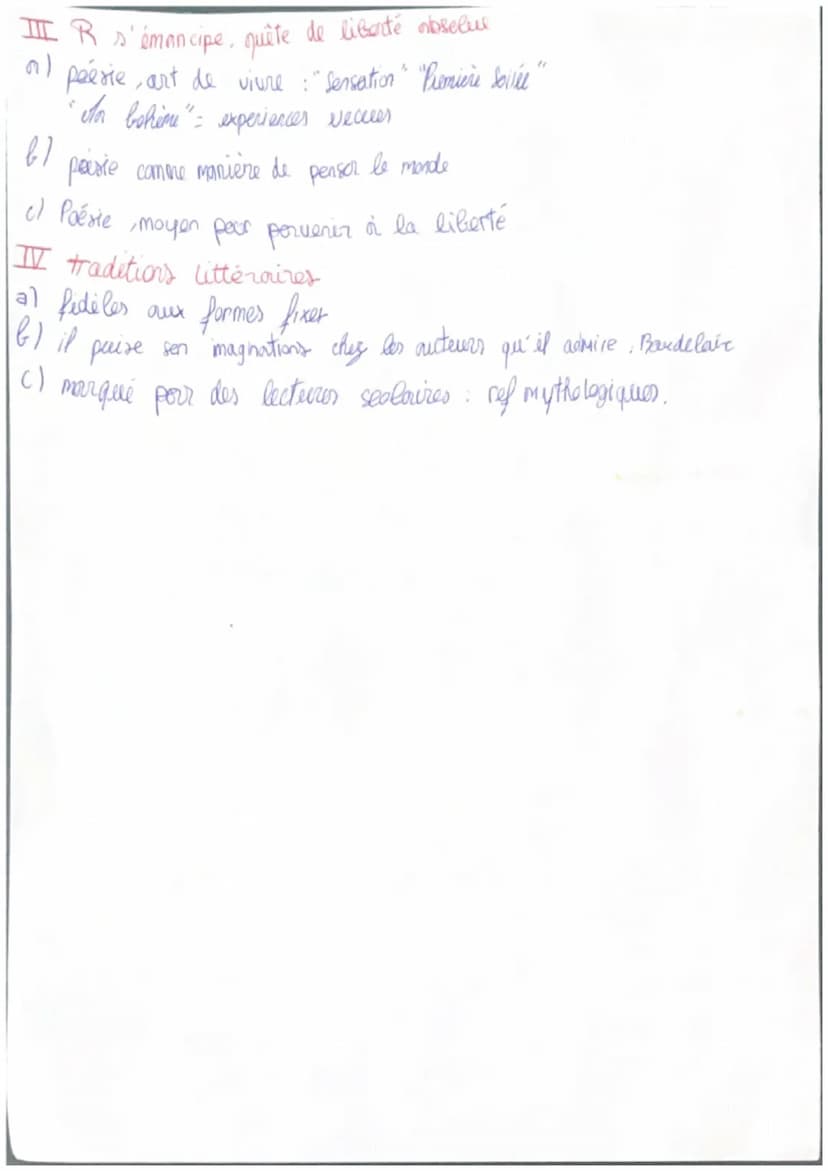 III R s'émancipe, quête de liberté absolue
a) poésie, art de vivre : "Sensation" "Première Soirée"
"Ma bohème" = experiences vecues
b) poésie comme manière de penser le monde
c) Poésie, moyen pour parvenir à la liberté
IV traditions littéraires
a) fidèles aux formes fixes
b) il puise son imaginations chez les auteurs qu'il admire, Baudelaire
c) marqué par des lectures scolaires : ref mythologiques.